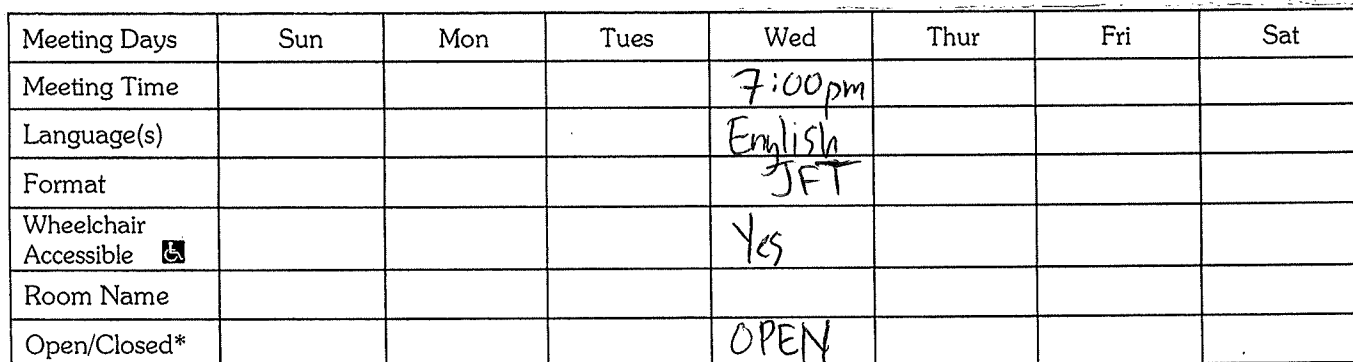 Meeting Days Sun Mon Tues Wed Thur Fri Sat
Meeting Time 7:00pm
Language(s) English
Format JFT
Wheelchair
Accessible Yes
Room Name
Open/Closed* OPEN